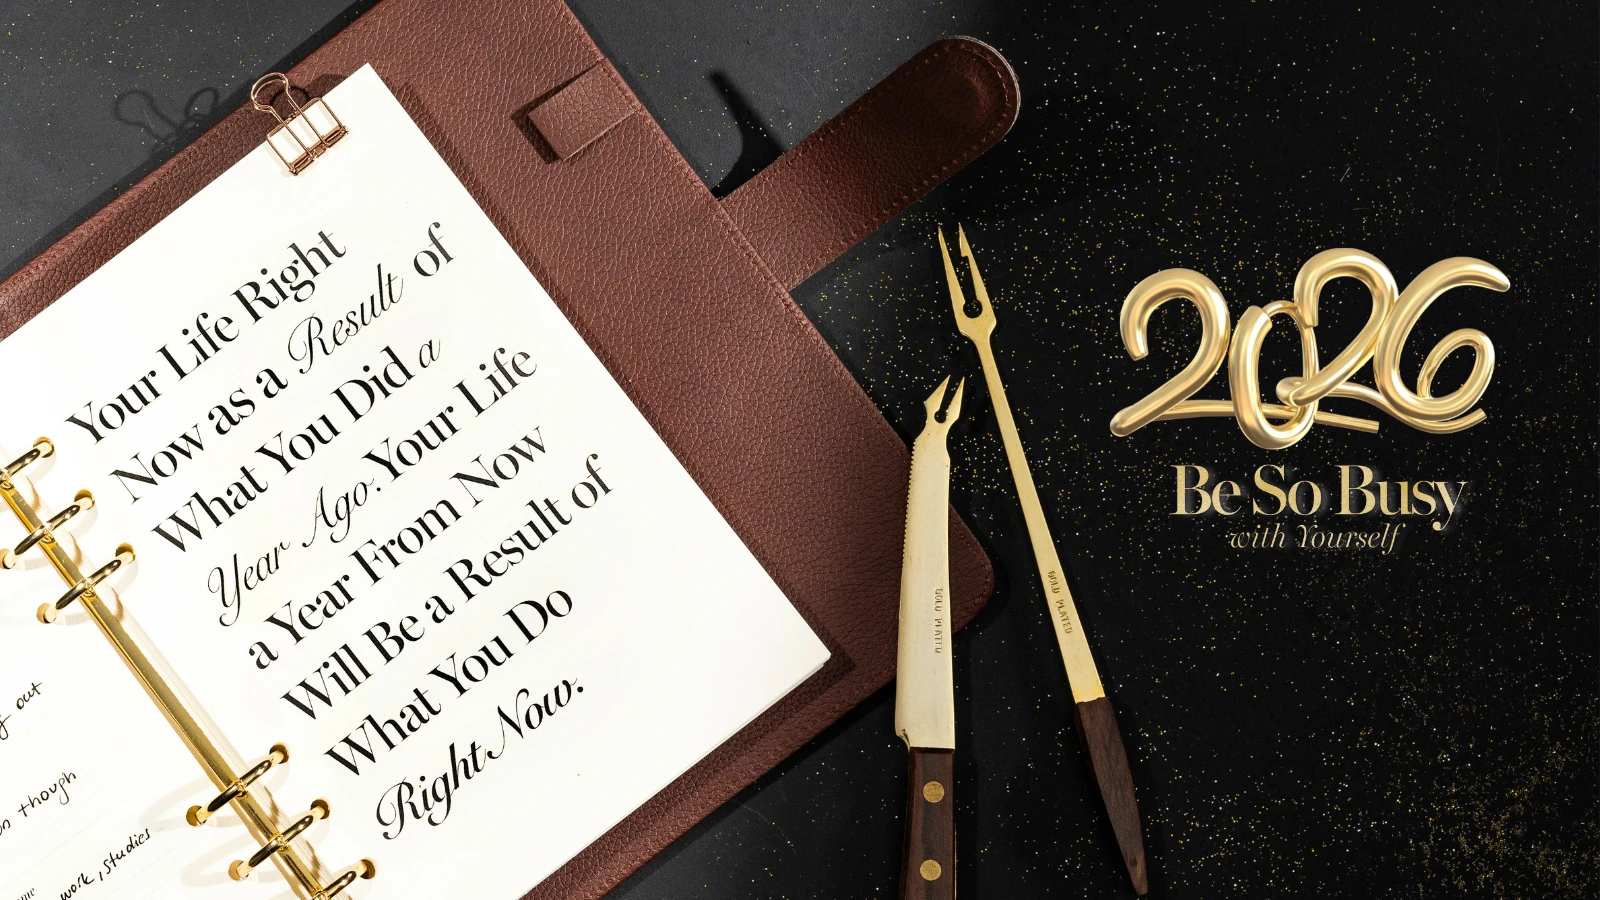 Your Life Right
Now as a Result of
What You Did a
Year Ago. Your Life
a Year From Now
Will Be a Result of
What You Do
Right Now.
out
on though
work, studies
GOLD PLATED
GOLD PLATED
2026
Be So Busy
with Yourself